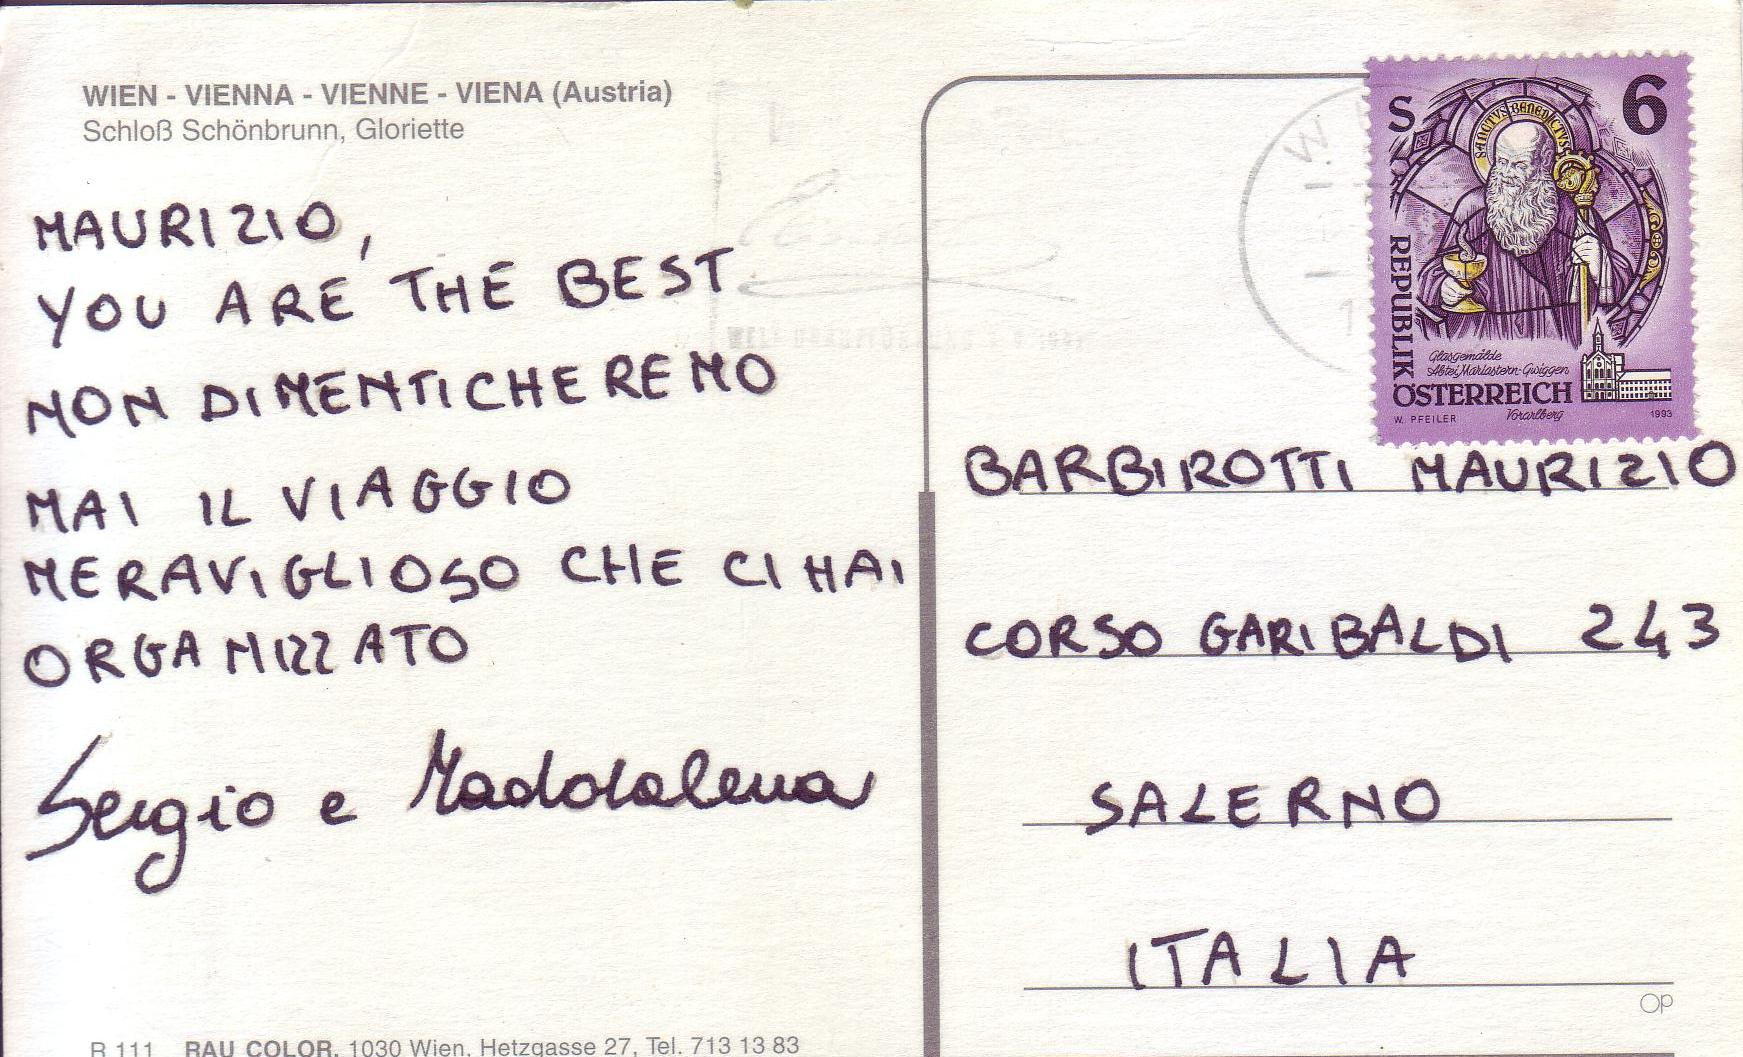 WIEN - VIENNA - VIENNE - VIENA (Austria)
Schloß Schönbrunn, Gloriette
MAURIZIO,
YOU ARE THE BEST
NON DIMENTICHEREMO
MAI IL VIAGGIO
MERAVIGLIOSO CHE CI HAI
ORGANIZZATO
Sergio e Maddalena
R 111 RAU COLOR, 1030 Wien, Hetzgasse 27, Tel. 713 13 83
S 6
SANCTVS BENEDICTVS
REPUBLIK
Glasgemälde
Abtei Mariastern-Gwiggen
ÖSTERREICH
W. PFEILER Vorarlberg 1993
BARBIROTTI MAURIZIO
CORSO GARIBALDI 243
SALERNO
ITALIA
OP